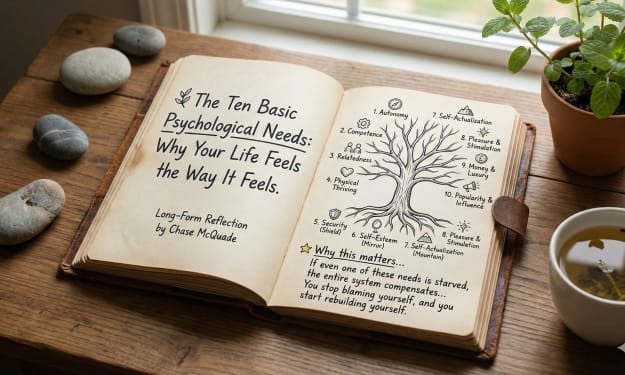 The Ten Basic
Psychological Needs:
Why Your Life Feels
the Way It Feels.
Long-Form Reflection
by Chase McQuade
1. Autonomy
2. Competence
3. Relatedness
4. Physical
Thriving
5. Security
(Shield)
6. Self-Esteem
(Mirror)
7. Self-Actualization
(Mountain)
7. Self-Actualization
8. Pleasure &
Stimulation
9. Money &
Luxury
10. Popularity &
Influence
8. Pleasure &
Stimulation
Why this matters...
If even one of these needs is starved,
the entire system compensates...
You stop blaming yourself, and you
start rebuilding yourself.